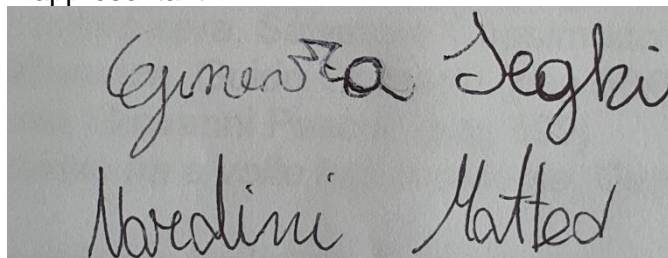 Ginevra Seghi
Nardini Matteo